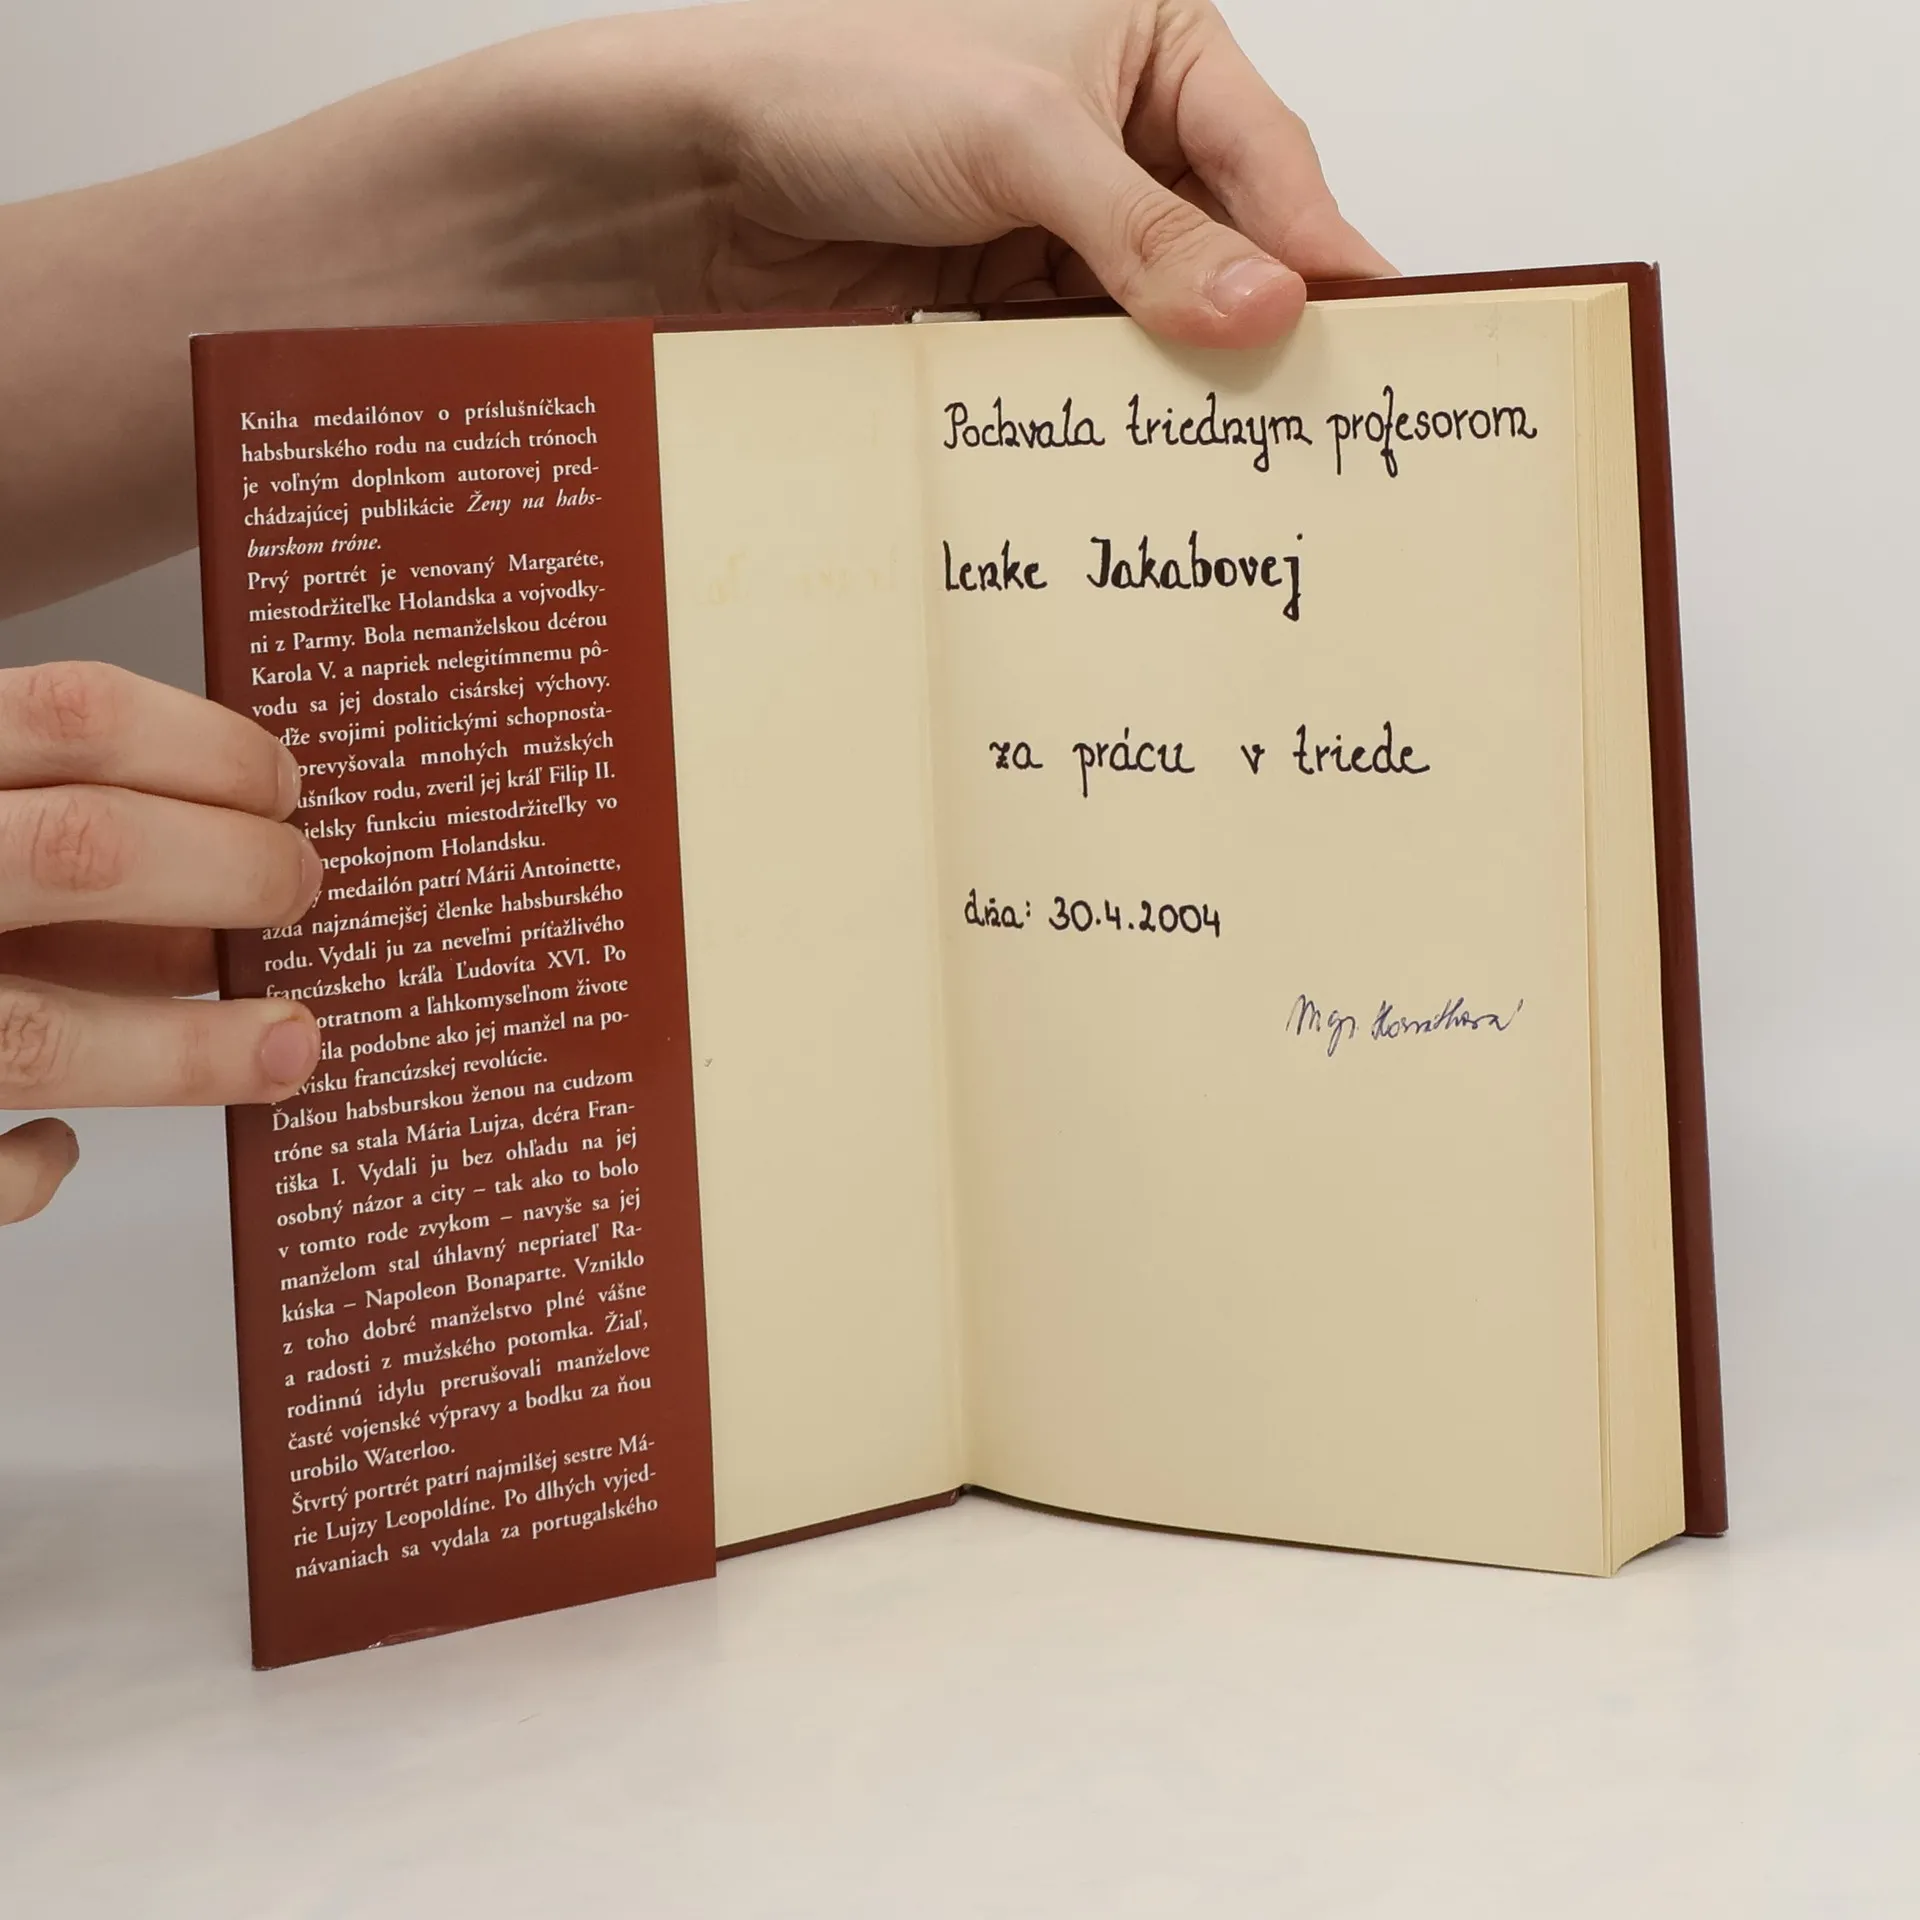 Kniha medailónov o príslušníčkach
habsburského rodu na cudzích trónoch
je voľným doplnkom autorovej pred-
chádzajúcej publikácie Ženy na habs-
burskom tróne.
Prvý portrét je venovaný Margaréte,
miestodržiteľke Holandska a vojvodky-
ni z Parmy. Bola nemanželskou dcérou
Karola V. a napriek nelegitímnemu pô-
vodu sa jej dostalo cisárskej výchovy.
svojimi politickými schopnosťa-
prevyšovala mnohých mužských
rodu, zveril jej kráľ Filip II.
funkciu miestodržiteľky vo
nepokojnom Holandsku.
medailón patrí Márii Antoinette,
najznámejšej členke habsburského
rodu. Vydali ju za neveľmi príťažlivého
francúzskeho kráľa Ľudovíta XVI. Po
a ľahkomyseľnom živote
podobne ako jej manžel na po-
francúzskej revolúcie.
Ďalšou habsburskou ženou na cudzom
tróne sa stala Mária Lujza, dcéra Fran-
tiška I. Vydali ju bez ohľadu na jej
osobný názor a city – tak ako to bolo
v tomto rode zvykom – navyše sa jej
manželom stal úhlavný nepriateľ Ra-
kúska – Napoleon Bonaparte. Vzniklo
z toho dobré manželstvo plné vášne
a radosti z mužského potomka. Žiaľ,
rodinnú idylu prerušovali manželove
časté vojenské výpravy a bodku za ňou
urobilo Waterloo.
Štvrtý portrét patrí najmilšej sestre Má-
rie Lujzy Leopoldíne. Po dlhých vyjed-
návaniach sa vydala za portugalského
Pochvala triednym profesorom
Lenke Jakabovej
za prácu v triede
dňa: 30.4.2004
Mgr. Horváthová